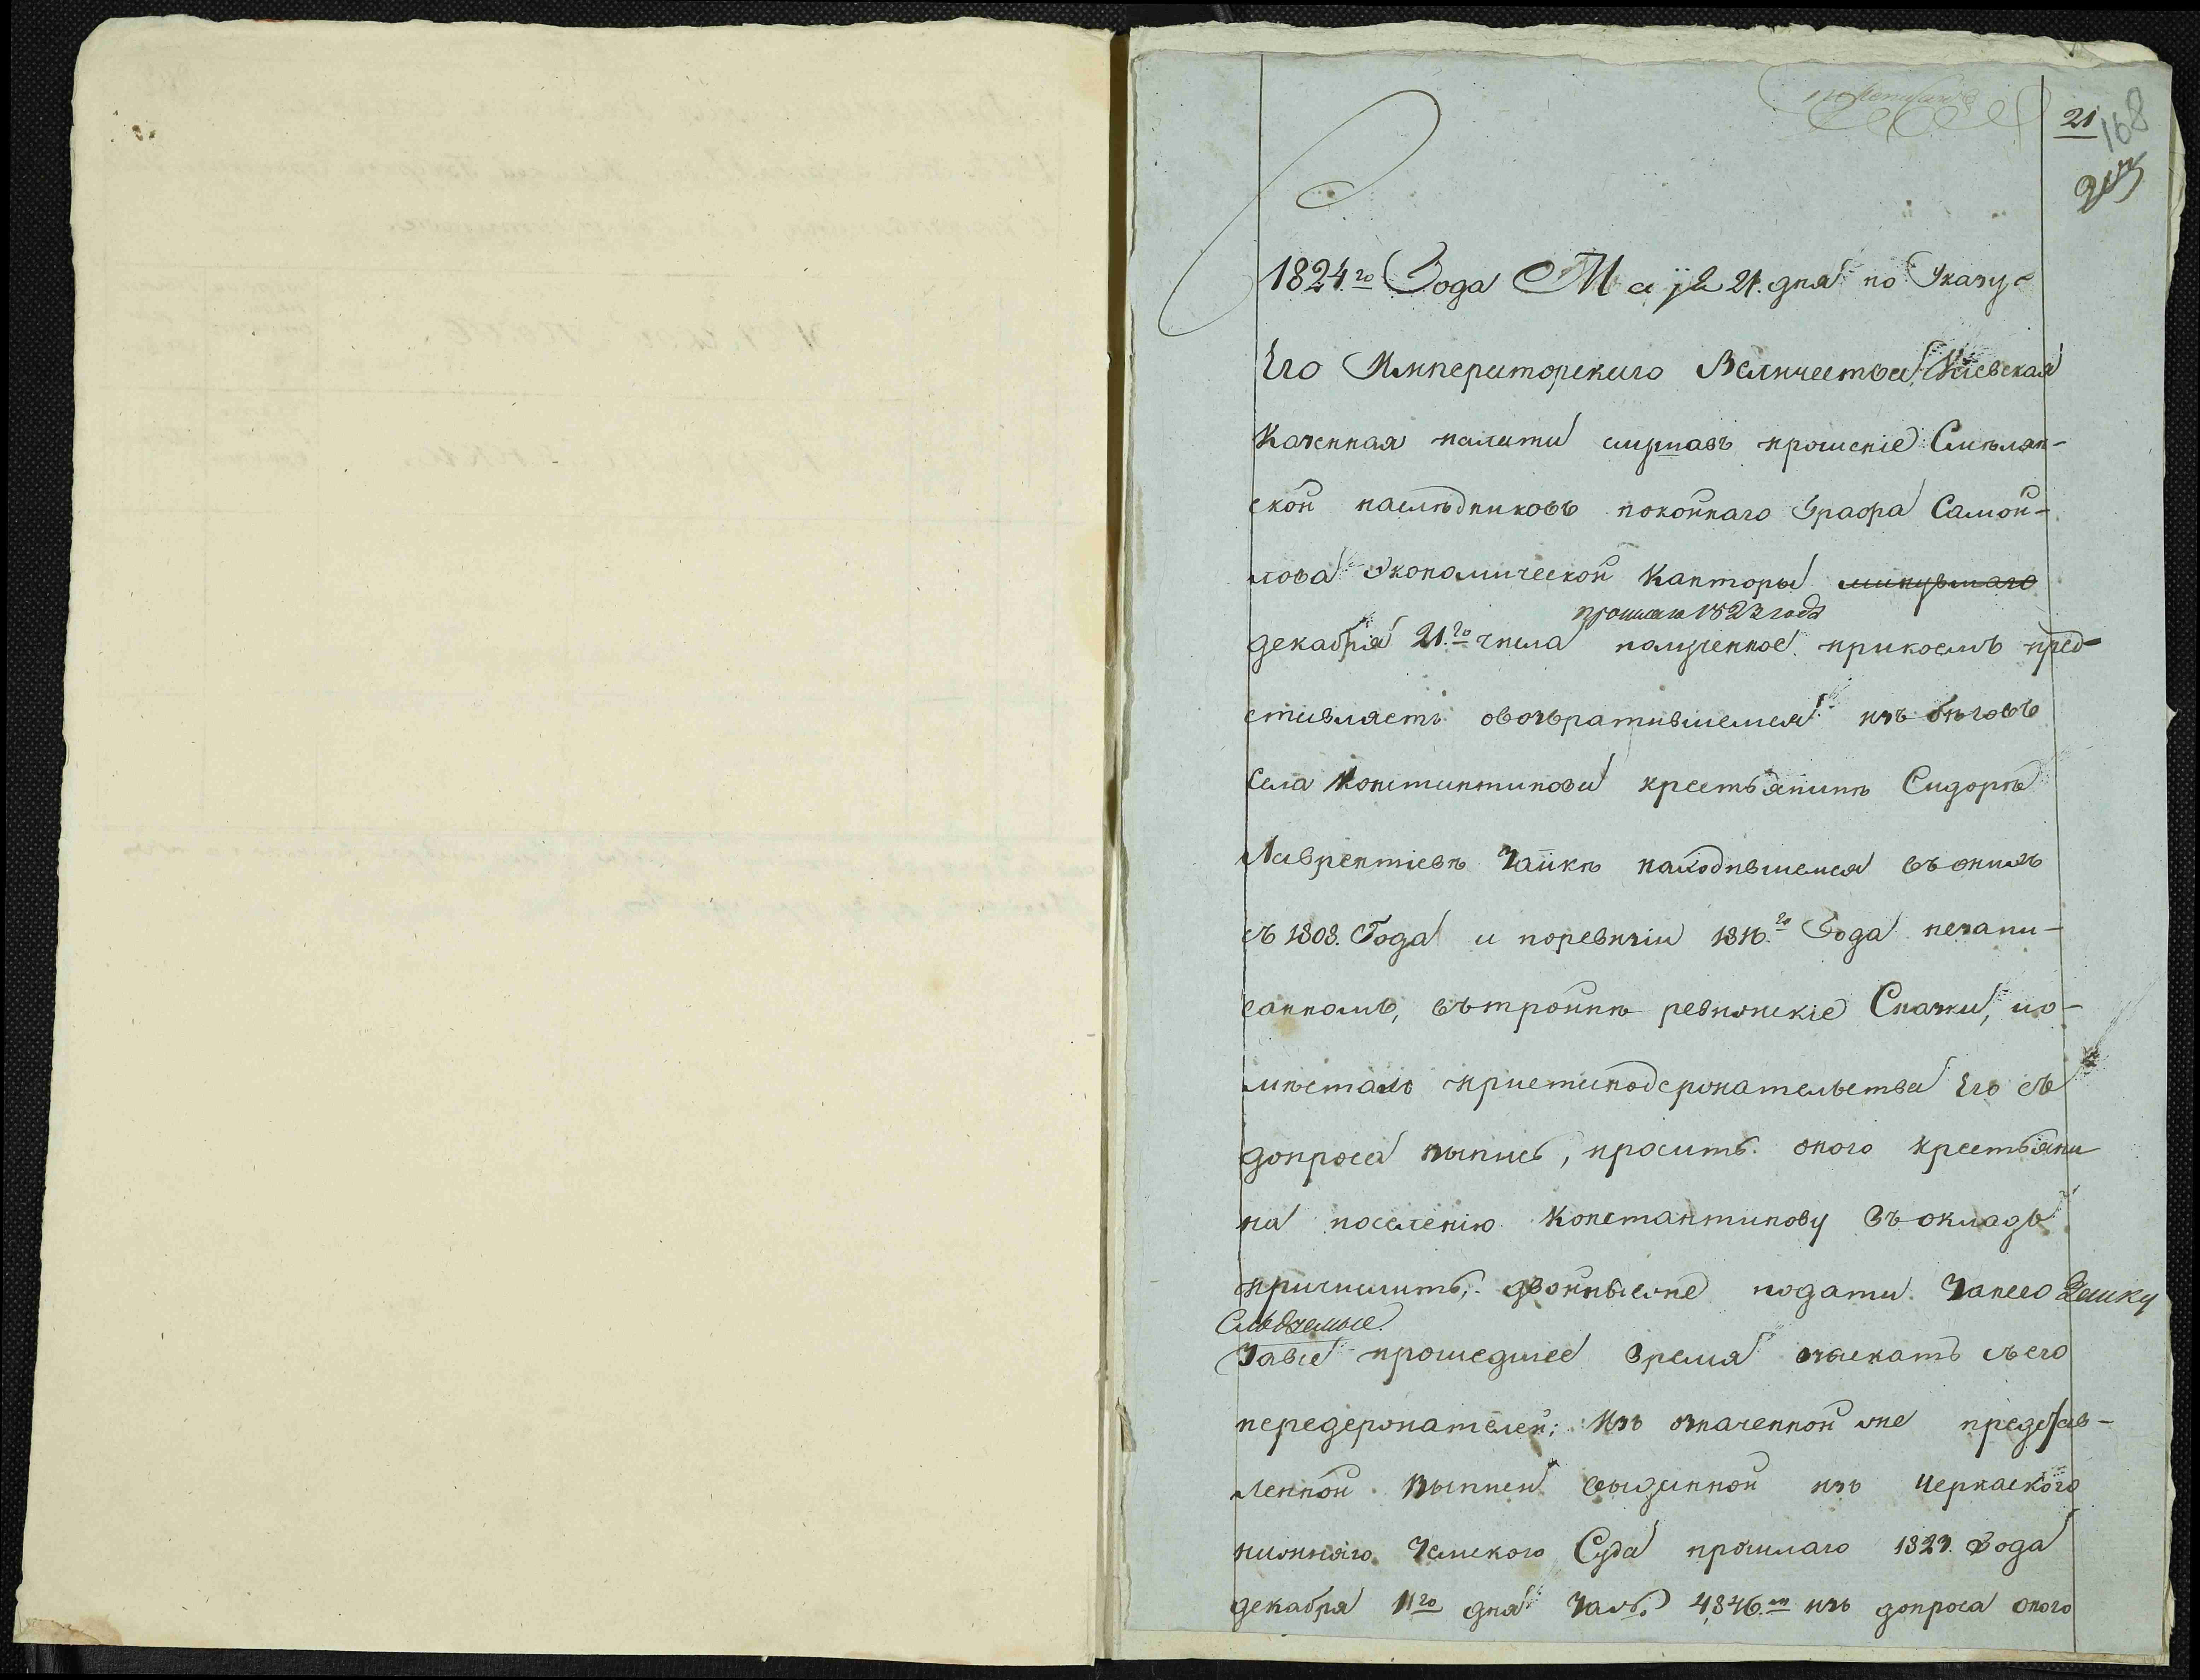 21
168
1824го Года Маія 21. дня по Указу
Его Императорскаго Величества Кіевская
Казенная палата слушавъ прошеніе Смѣлян-
ской наслѣдниковъ покойнаго Графа Самой-
лова Экономической Канторы минувшаго
прошлаго 1823 года
декабря 21го числа полученное прикоемъ пред-
ставляетъ овозвратившемся изъ бѣговъ
села Константинова крестьянинѣ Сидорѣ
Лаврентіевѣ Заикѣ находившемся въ онихъ
съ 1808. Года и поревизіи 1816го Года незапи-
санномъ, вътройнѣ ревизскіе Скажи, по-
мѣстахъ пристанодержательства Его съ
допроса выпись, проситъ оного крестьяни
на поселенію Константинову въ окладъ
причислить, двойныеже подати занего Заику
Слѣдуемые
Завсе прошедшее время взыскать съего
передержателей; Изъ означенной же представ-
ленной выписи выданной изъ Черкаского
нижняго Земского Суда прошлаго 1823. Года
декабря 11го дня За № 4,846м изъ допроса оного